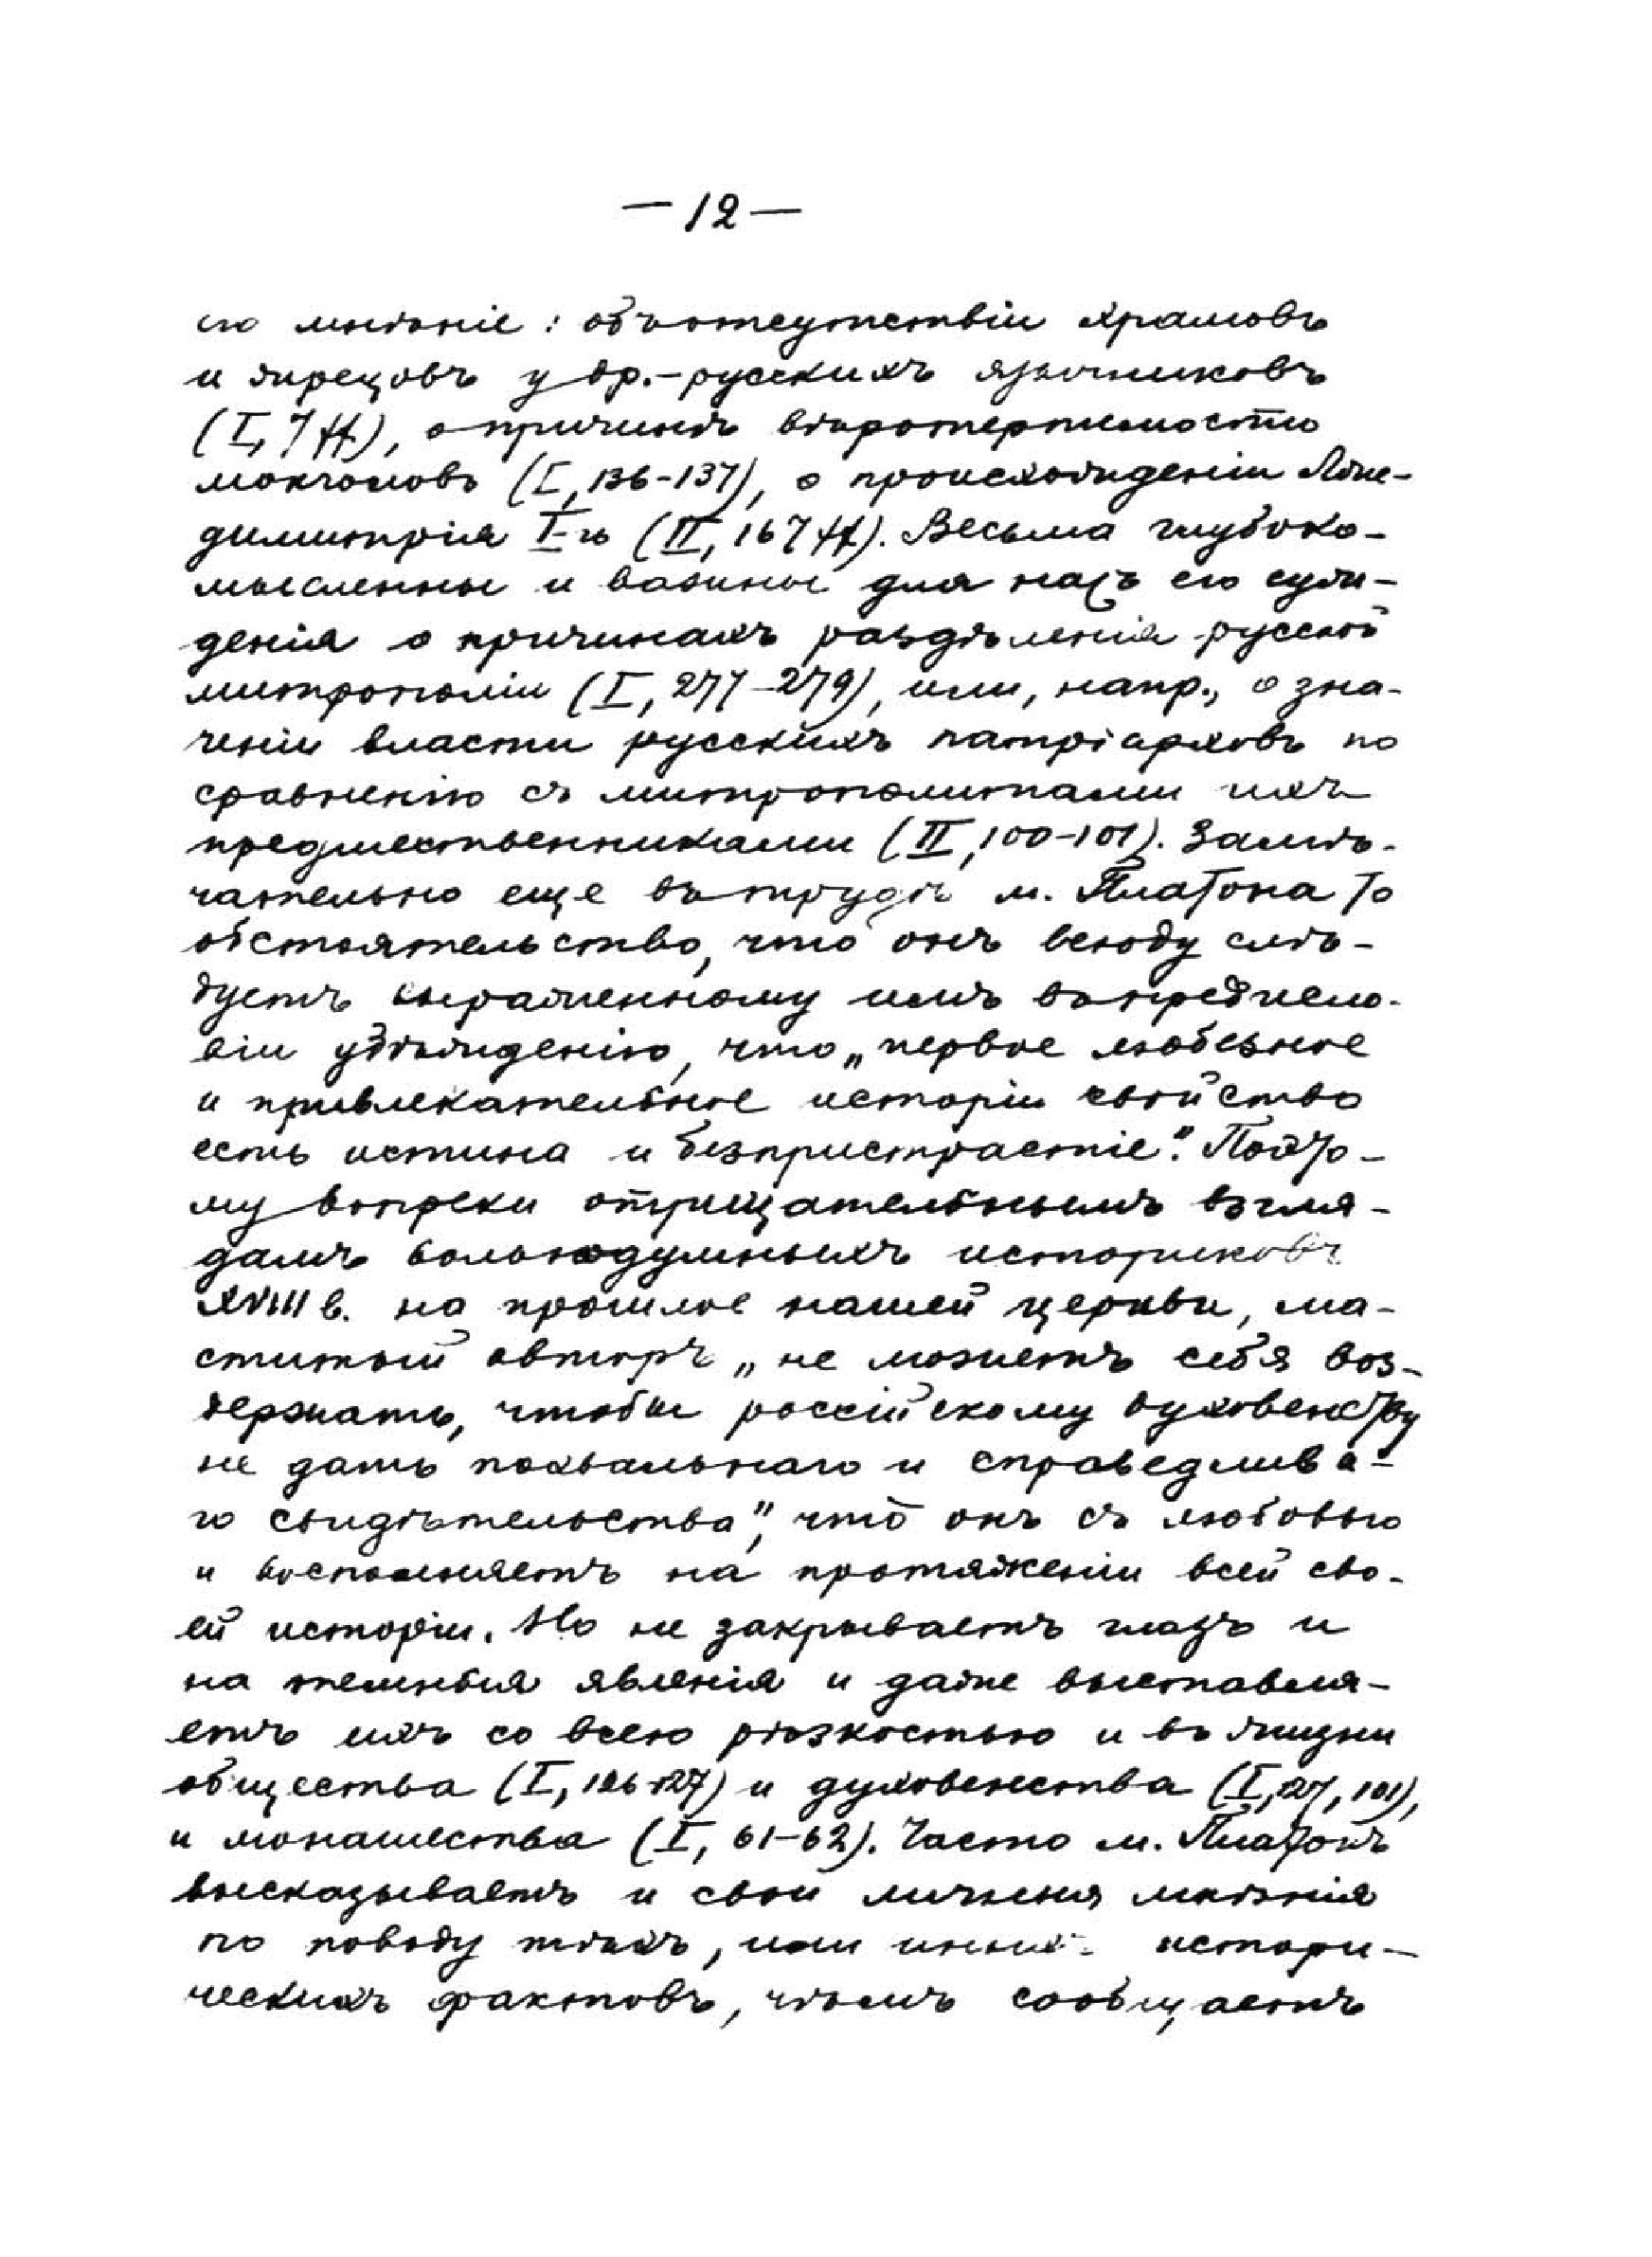 — 12 —
его мнѣніе: объ отсутствіи храмовъ
и жрецовъ у др.-русскихъ язычниковъ
(I, 7 ff), о причинѣ вѣротерпимости
монголовъ (I, 136-137), о происхожденіи Лже-
димитрія I-го (II, 167 ff). Весьма глубоко-
мысленны и важны для насъ его суж-
денія о причинахъ раздѣленія русской
митрополіи (I, 277-279), или, напр., о зна-
ченіи власти русскихъ патріарховъ по
сравненію съ митрополитами ихъ
предшественниками (II, 100-101). Замѣ-
чательно еще въ трудѣ м. Платона то
обстоятельство, что онъ всюду слѣ-
дуетъ выраженному имъ въ предисло-
віи убѣжденію, что „первое любезное
и привлекательное исторіи свойство
есть истина и безпристрастіе". Поэто-
му вопреки отрицательнымъ взгля-
дамъ вольнодумныхъ историковъ
XVIII в. на прошлое нашей церкви, ма-
ститый авторъ „не можетъ себя воз-
держать, чтобы россійскому духовенству
не дать похвальнаго и справедлива-
го свидѣтельства", что онъ съ любовью
и восполняетъ на протяженіи всей сво-
ей исторіи. Но не закрываетъ глазъ и
на темныя явленія и даже выставля-
етъ ихъ со всею рѣзкостью и въ жизни
общества (I, 126-127) и духовенства (I, 27, 101),
и монашества (I, 61-62). Часто м. Платонъ
высказываетъ и свои личныя мнѣнія
по поводу тѣхъ, или иныхъ истори-
ческихъ фактовъ, чѣмъ сообщаетъ